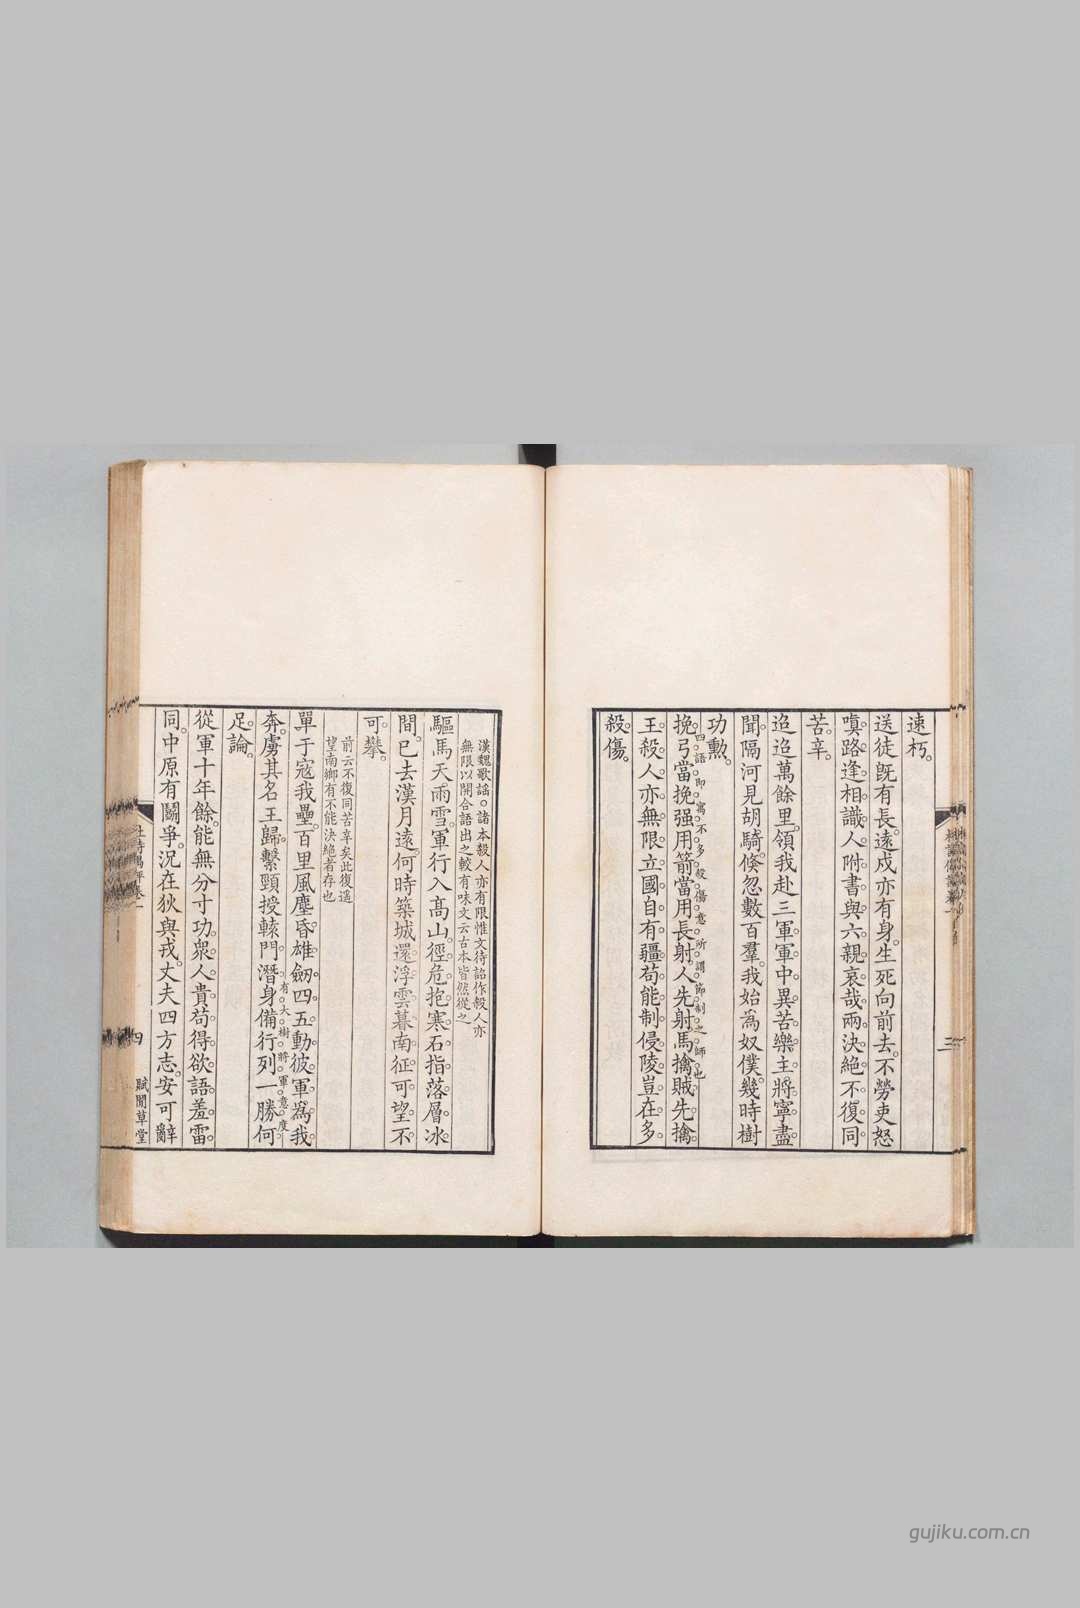 速朽。
送徒旣有長。遠戍亦有身。生死向前去。不勞吏怒
嗔。路逢相識人。附書與六親。哀哉兩決絕。不復同
苦辛。
迢迢萬餘里。領我赴三軍。軍中異苦樂。主將寧盡
聞。隔河見胡騎。倏忽數百羣。我始爲奴僕。幾時樹
功勲。
四語卽寓不多殺傷意所謂節制之師也
挽弓當挽强。用箭當用長。射人先射馬。擒賊先擒
王。殺人亦無限。立國自有疆。苟能制侵陵。豈在多
殺傷。
三
漢魏歌謡。諸本殺人亦有限惟文待詔作殺人亦
無限以開合語出之較有味文云古本皆然從之
驅馬天雨雪。軍行入高山。徑危抱寒石。指落層冰
間。已去漢月遠。何時築城還。浮雲暮南征。可望不
可攀。
前云不復同苦辛矣此復遥
望南鄉有不能決絕者存也
單于寇我壘。百里風塵昏。雄劒四五動。彼軍爲我
有大樹將軍意度
奔。虜其名王歸。繫頸授轅門。潛身備行列。一勝何
足論。
從軍十年餘。能無分寸功。衆人貴苟得。欲語羞雷
同。中原有鬭爭。况在狄與戎。丈夫四方志。安可辭
杜詩偶評卷一
四
賦閒草堂
gujiku.com.cn